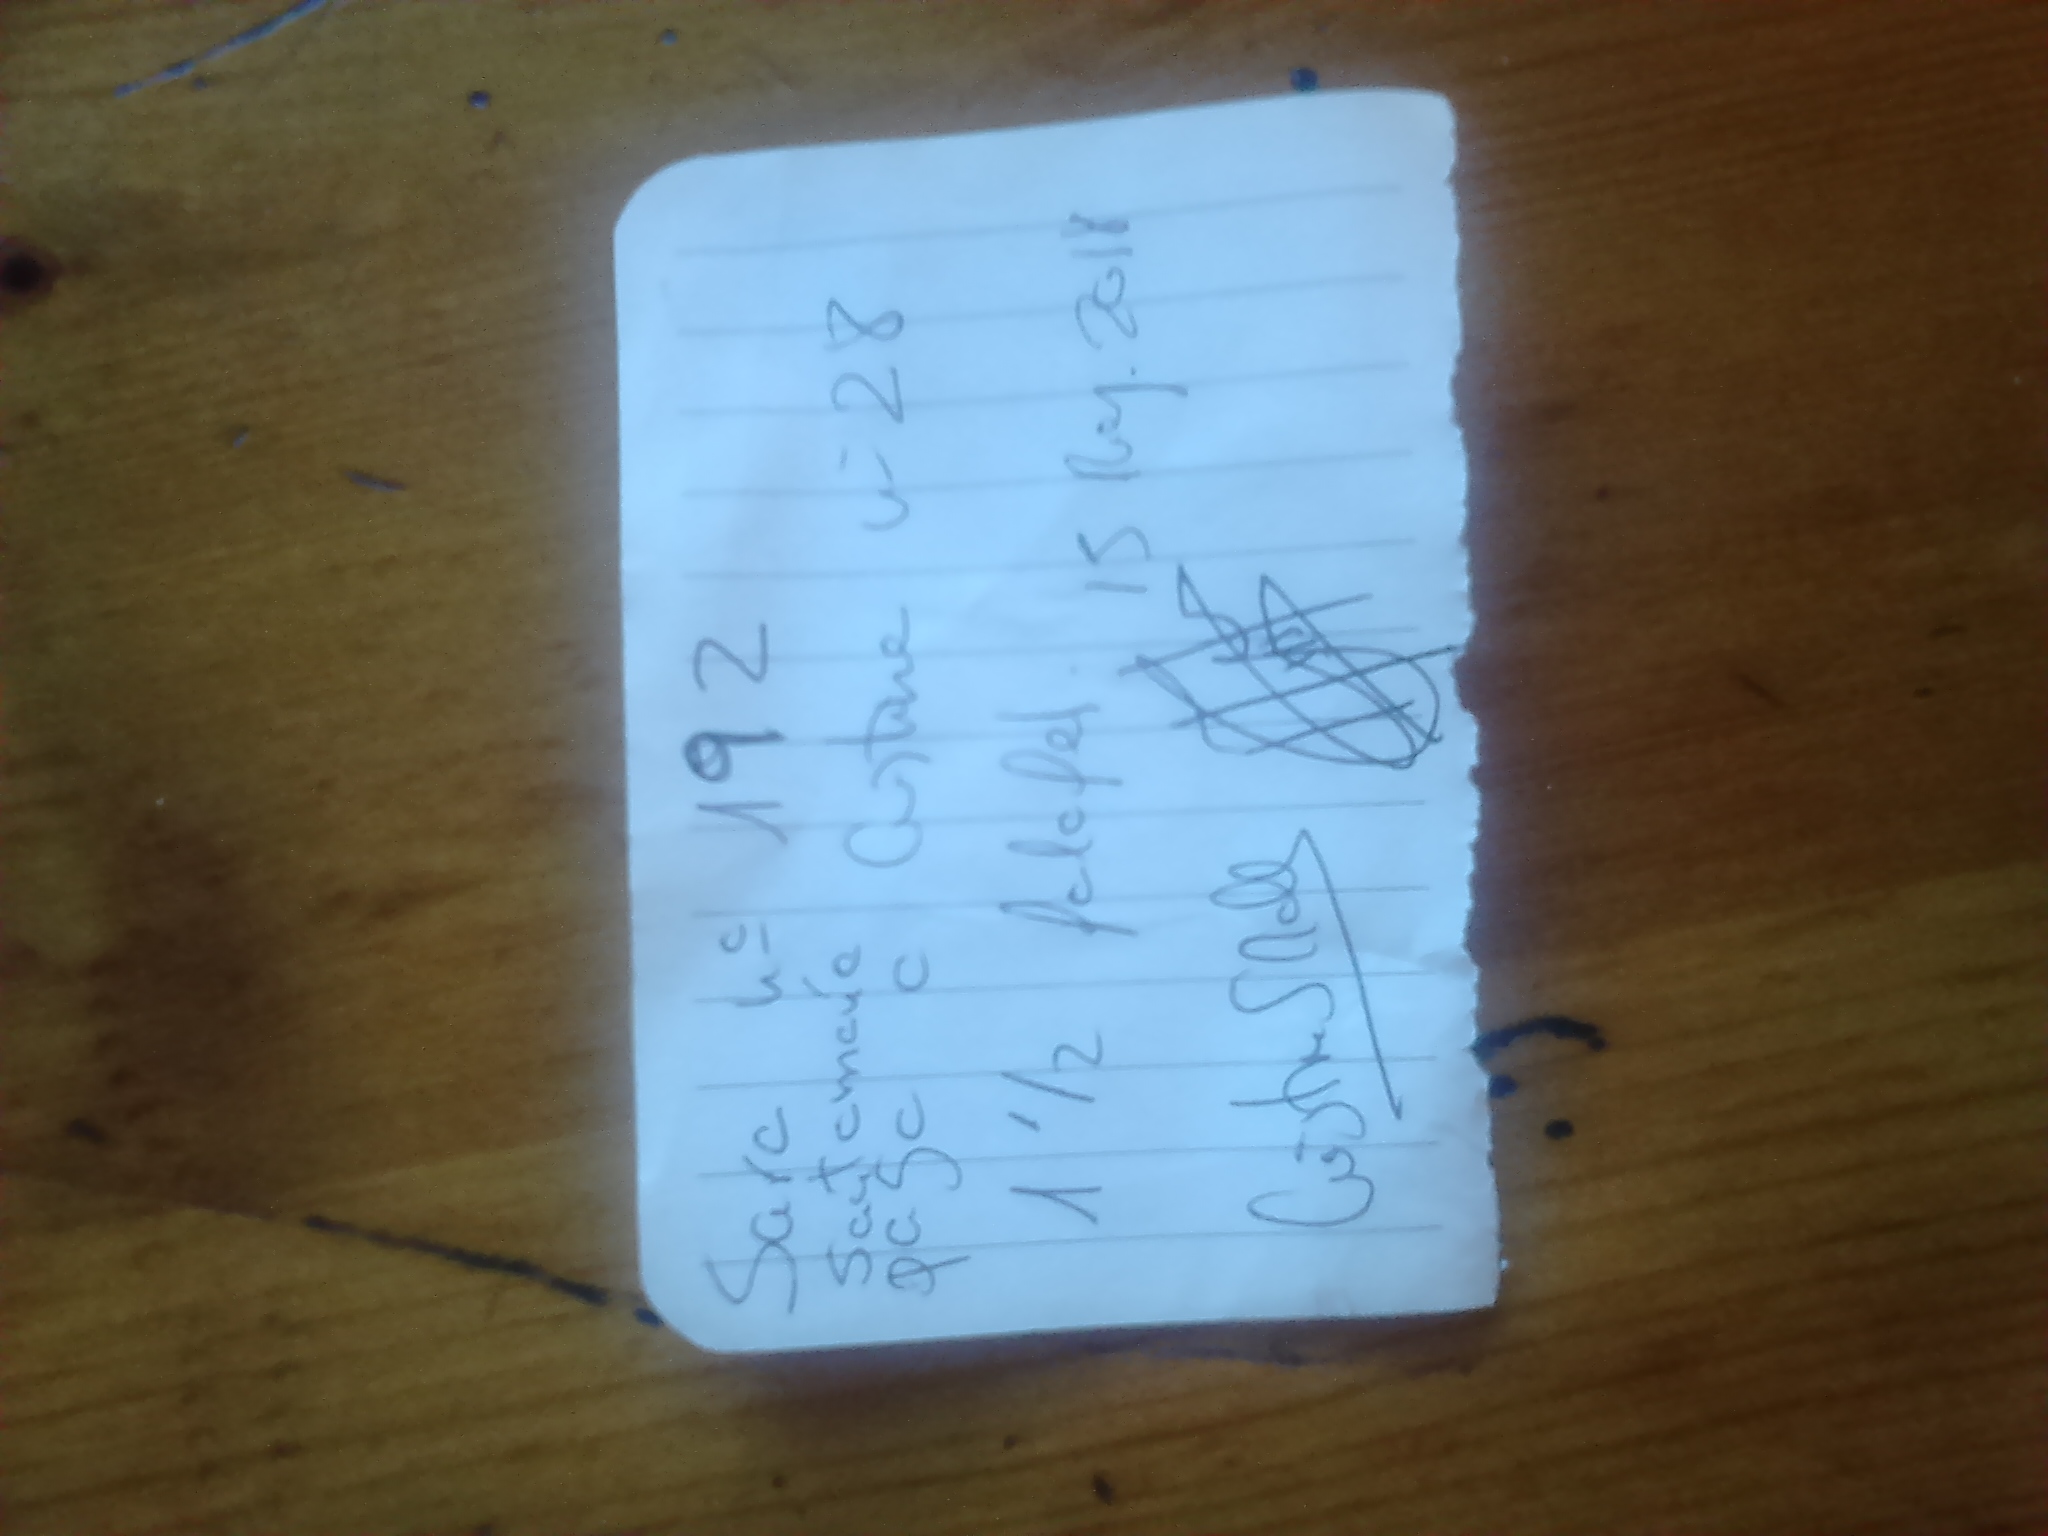 Sara nº 192
Santamaría
paga a Cristina nº 28
1 1/2 falafel.
15 May. 2018
Cristina